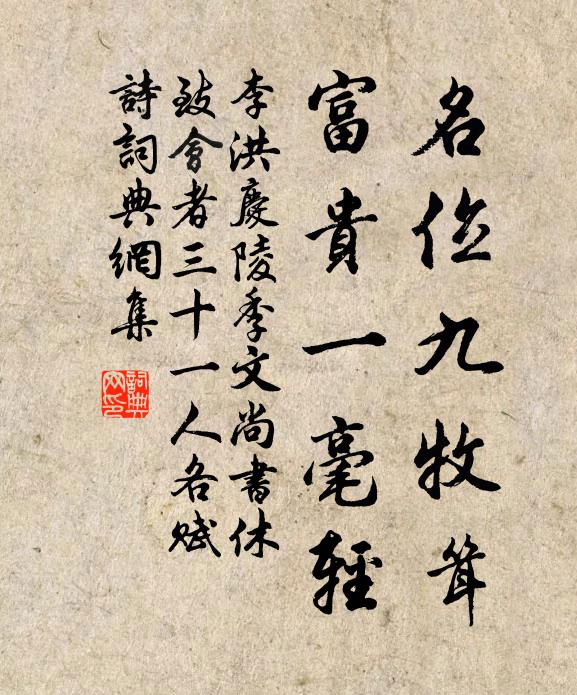 名位九牧耸
富貴一毫輕
李洪慶陵季文尚書休
致會者三十一人各赋
詩詞典網集
詞典
网印